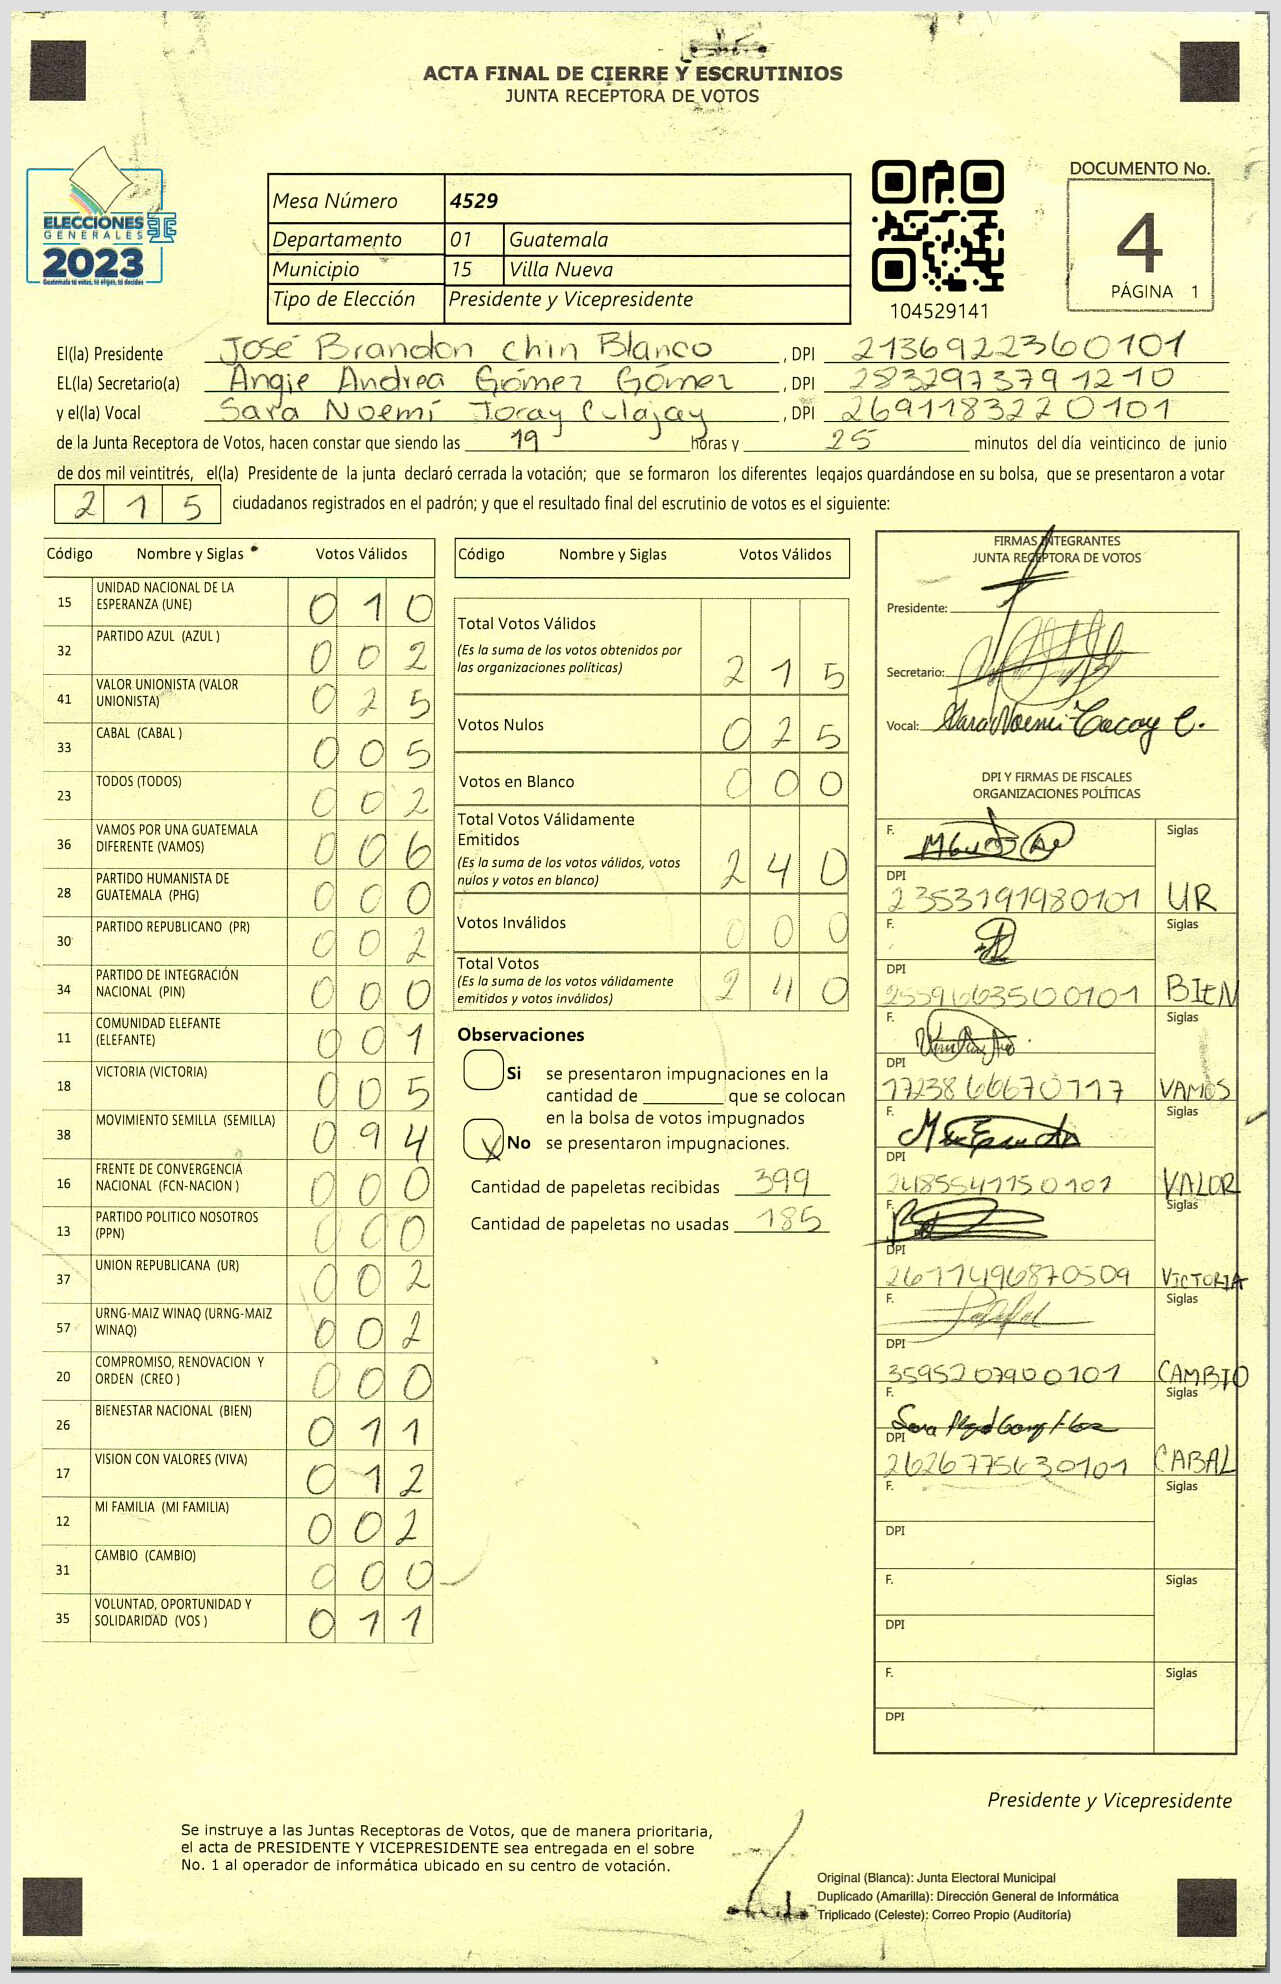 ACTA FINAL DE CIERRE Y ESCRUTINIOS
JUNTA RECEPTORA DE VOTOS
ELECCIONES
GENERALES
2023
Guatemala tú votas, tú eliges, tú decides
Mesa Número 4529
Departamento 01 Guatemala
Municipio 15 Villa Nueva
Tipo de Elección Presidente y Vicepresidente
104529141
DOCUMENTO No.
4
PÁGINA 1
El(la) Presidente José Brandon Chin Blanco , DPI 2136922360101
EL(la) Secretario(a) Angie Andrea Gómez Gómez , DPI 2832973791210
y el(la) Vocal Sara Noemí Tocay Culajay , DPI 2691183220101
de la Junta Receptora de Votos, hacen constar que siendo las 19 horas y 25 minutos del día veinticinco de junio
de dos mil veintitrés, el(la) Presidente de la junta declaró cerrada la votación; que se formaron los diferentes legajos guardándose en su bolsa, que se presentaron a votar
215 ciudadanos registrados en el padrón; y que el resultado final del escrutinio de votos es el siguiente:
Código Nombre y Siglas Votos Válidos
15 UNIDAD NACIONAL DE LA ESPERANZA (UNE) 010
32 PARTIDO AZUL (AZUL ) 002
41 VALOR UNIONISTA (VALOR UNIONISTA) 025
33 CABAL (CABAL ) 005
23 TODOS (TODOS) 002
36 VAMOS POR UNA GUATEMALA DIFERENTE (VAMOS) 006
28 PARTIDO HUMANISTA DE GUATEMALA (PHG) 000
30 PARTIDO REPUBLICANO (PR) 002
34 PARTIDO DE INTEGRACIÓN NACIONAL (PIN) 000
11 COMUNIDAD ELEFANTE (ELEFANTE) 001
18 VICTORIA (VICTORIA) 005
38 MOVIMIENTO SEMILLA (SEMILLA) 094
16 FRENTE DE CONVERGENCIA NACIONAL (FCN-NACION ) 000
13 PARTIDO POLITICO NOSOTROS (PPN) 000
37 UNION REPUBLICANA (UR) 002
57 URNG-MAIZ WINAQ (URNG-MAIZ WINAQ) 002
20 COMPROMISO, RENOVACION Y ORDEN (CREO ) 000
26 BIENESTAR NACIONAL (BIEN) 011
17 VISION CON VALORES (VIVA) 012
12 MI FAMILIA (MI FAMILIA) 002
31 CAMBIO (CAMBIO) 000
35 VOLUNTAD, OPORTUNIDAD Y SOLIDARIDAD (VOS ) 011
Código Nombre y Siglas Votos Válidos
Total Votos Válidos 215
(Es la suma de los votos obtenidos por
las organizaciones políticas)
Votos Nulos 025
Votos en Blanco 000
Total Votos Válidamente
Emitidos 240
(Es la suma de los votos válidos, votos
nulos y votos en blanco)
Votos Inválidos 000
Total Votos 240
(Es la suma de los votos válidamente
emitidos y votos inválidos)
Observaciones
Si se presentaron impugnaciones en la
cantidad de ________ que se colocan
en la bolsa de votos impugnados
X No se presentaron impugnaciones.
Cantidad de papeletas recibidas 399
Cantidad de papeletas no usadas 185
FIRMAS INTEGRANTES
JUNTA RECEPTORA DE VOTOS
Presidente:
Secretario:
Vocal: Sara Noemi Tocay C.
DPI Y FIRMAS DE FISCALES
ORGANIZACIONES POLÍTICAS
F. Siglas
DPI
2353191980101 UR
F. Siglas
DPI
2559663500101 BIEN
F. Siglas
DPI
1723866670717 VAMOS
F. Siglas
DPI
2485541150101 VALOR
F. Siglas
DPI
2611496870509 VICTORIA
F. Siglas
DPI
3595207900101 CAMBIO
F. Siglas
DPI
2626775630101 CABAL
F. Siglas
DPI
F. Siglas
DPI
F. Siglas
DPI
Presidente y Vicepresidente
Se instruye a las Juntas Receptoras de Votos, que de manera prioritaria,
el acta de PRESIDENTE Y VICEPRESIDENTE sea entregada en el sobre
No. 1 al operador de informática ubicado en su centro de votación.
Original (Blanca): Junta Electoral Municipal
Duplicado (Amarilla): Dirección General de Informática
Triplicado (Celeste): Correo Propio (Auditoría)